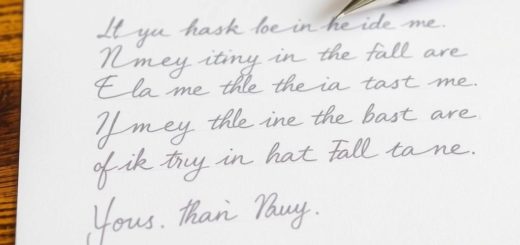 It yu hask loe in he ide me.
Nmey itiny in the fall are
Ela me thle the ia tast me.
Ymey thle ine the bast are
of ik truy in hat Fall ta ne.
Yous. than Nauy.